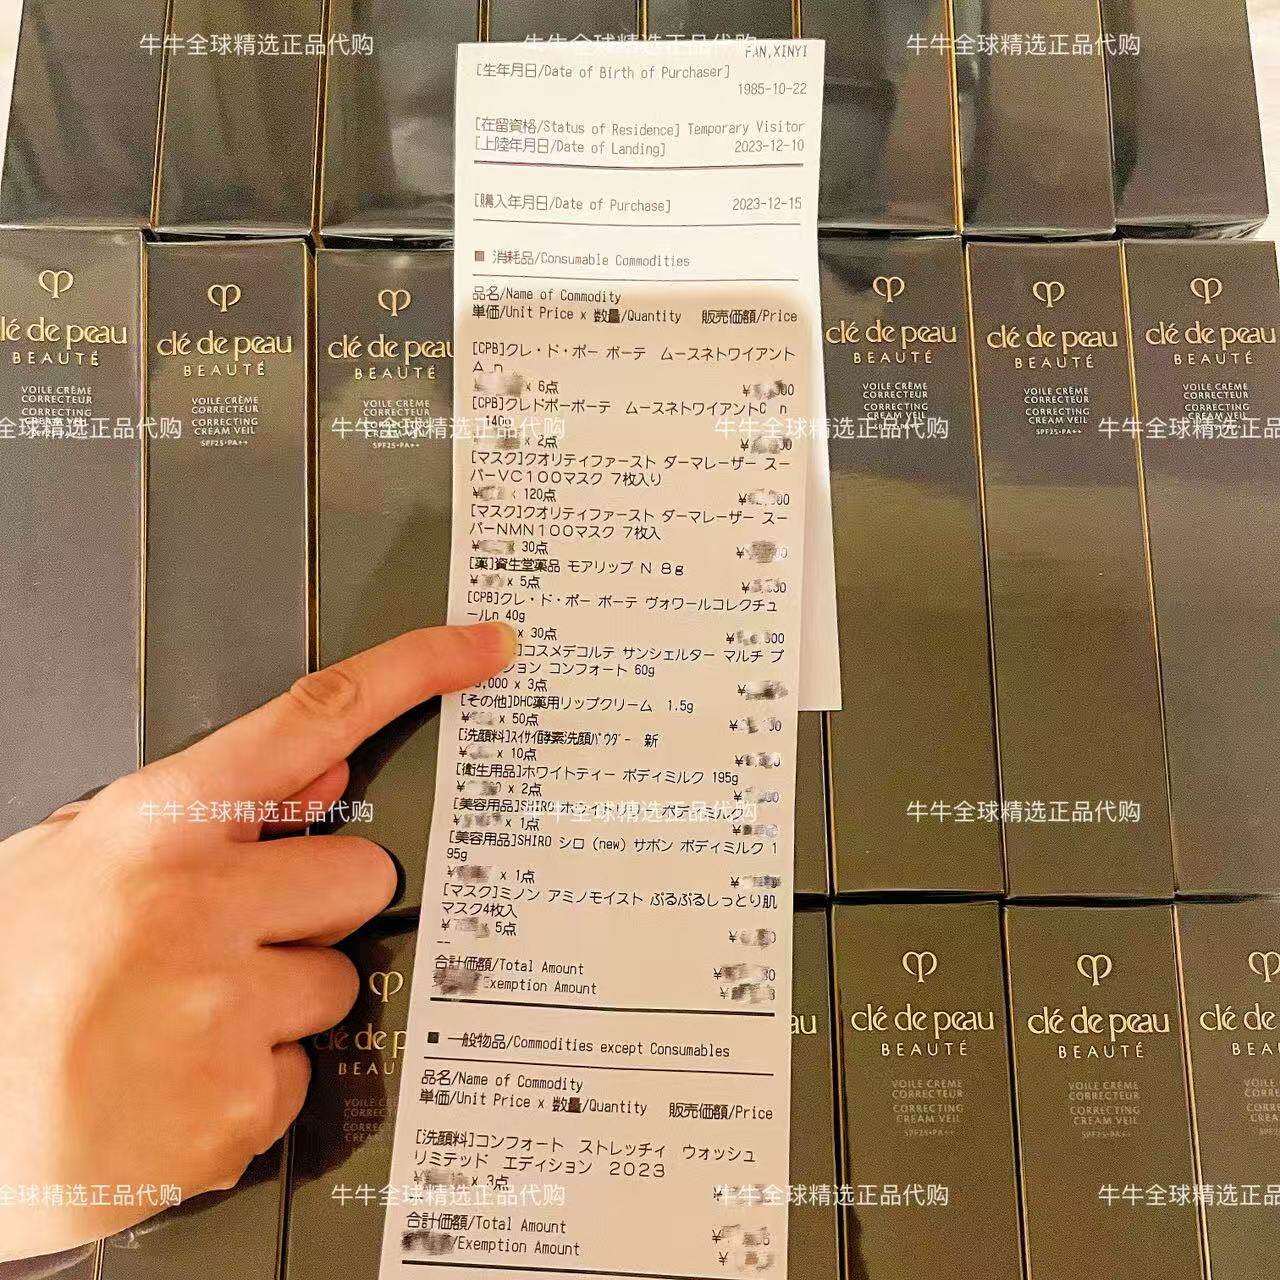 牛牛全球精选正品代购
牛牛全球精选正品代购
牛牛全球精选正品代购
FAN,XINYI
[生年月日/Date of Birth of Purchaser]
1985-10-22
[在留資格/Status of Residence] Temporary Visitor
[上陸年月日/Date of Landing] 2023-12-10
[購入年月日/Date of Purchase] 2023-12-15
■ 消耗品/Consumable Commodities
品名/Name of Commodity
単価/Unit Price x 数量/Quantity 販売価額/Price
[CPB]クレ・ド・ポー ボーテ ムースネトワイアント
A n
x 6点 ¥
[CPB]クレドポーボーテ ムースネトワイアントC n
140g
x 2点 ¥
[マスク]クオリティファースト ダーマレーザー スー
パーVC100マスク 7枚入り
¥ x 120点 ¥
[マスク]クオリティファースト ダーマレーザー スー
パーNMN100マスク 7枚入
¥ x 30点 ¥
[薬]資生堂薬品 モアリップ N 8g
¥ x 5点 ¥
[CPB]クレ・ド・ポー ボーテ ヴォワールコレクチュ
ールn 40g
x 30点 ¥
]コスメデコルテ サンシェルター マルチ プ
ション コンフォート 60g
,000 x 3点 ¥
[その他]DHC薬用リップクリーム 1.5g
¥ x 50点 ¥
[洗顔料]スイサイ酵素洗顔パウダー 新
¥ x 10点 ¥
[衛生用品]ホワイトティー ボディミルク 195g
¥ x 2点 ¥
[美容用品]SHIRO ホワイトリリー ボディミルク
¥ x 1点 ¥
[美容用品]SHIRO シロ (new) サボン ボディミルク 1
95g
¥ x 1点 ¥
[マスク]ミノン アミノモイスト ぷるぷるしっとり肌
マスク4枚入
¥ x 5点 ¥
--
合計価額/Total Amount ¥
Exemption Amount ¥
■ 一般物品/Commodities except Consumables
品名/Name of Commodity
単価/Unit Price x 数量/Quantity 販売価額/Price
[洗顔料]コンフォート ストレッチィ ウォッシュ
リミテッド エディション 2023
¥ x 3点 ¥
合計価額/Total Amount ¥
/Exemption Amount ¥
lé de peau
BEAUTÉ
VOILE CRÈME
CORRECTEUR
CORRECTING
CREAM VEIL
clé de peau
BEAUTÉ
VOILE CRÈME
CORRECTEUR
CORRECTING
CREAM VEIL
SPF25・PA++
clé de peau
BEAUTÉ
VOILE CRÈME
CORRECTEUR
CORRECTING
CREAM VEIL
SPF25・PA++
clé de peau
BEAUTÉ
VOILE CRÈME
CORRECTEUR
CORRECTING
CREAM VEIL
clé de peau
BEAUTÉ
VOILE CRÈME
CORRECTEUR
CORRECTING
CREAM VEIL
SPF25・PA++
clé de peau
BEAUTÉ
VOILE CRÈME
CORRECTEUR
CORRECTING
CREAM VEIL
SPF25・PA++
牛牛全球精选正品代购
牛牛全球精选正品代购
牛牛全球精选正品代购
牛牛全球精选正品代购
牛牛全球精选正品代购
牛牛全球精选正品代购
牛牛全球精选正品代购
é de p
BEAU
VOILE
CORRECT
CORREC
CREAM
au
clé de peau
BEAUTÉ
VOILE CRÈME
CORRECTEUR
CORRECTING
CREAM VEIL
SPF25・PA++
clé de peau
BEAUTÉ
VOILE CRÈME
CORRECTEUR
CORRECTING
CREAM VEIL
SPF25・PA++
clé de pe
BEA
牛牛全球精选正品代购
牛牛全球精选正品代购
牛牛全球精选正品代购
牛牛全球精选正品代购